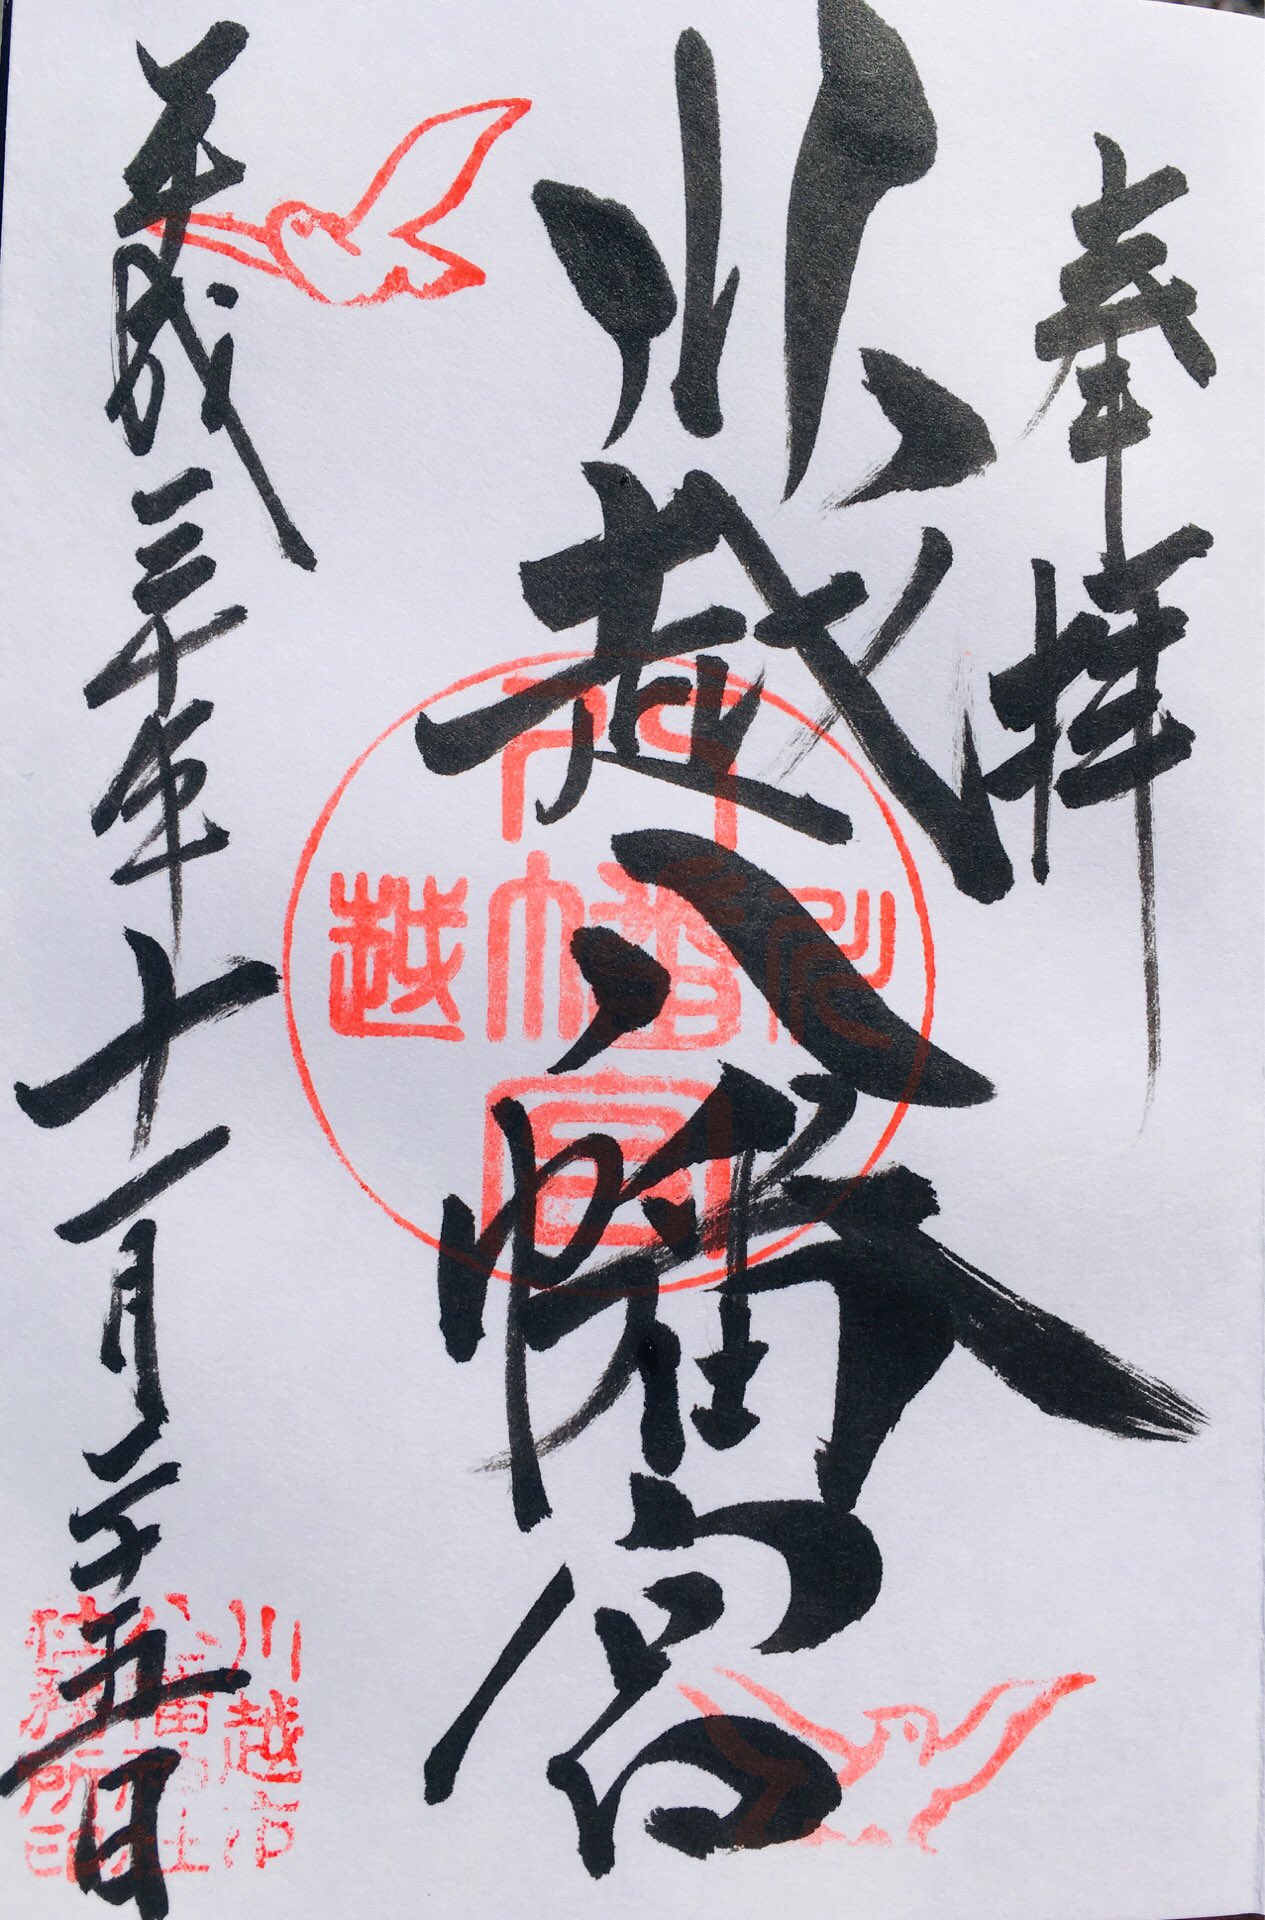 奉拝
川越八幡宮
平成三十年十一月二十五日
川越市
八幡神社
社務所印